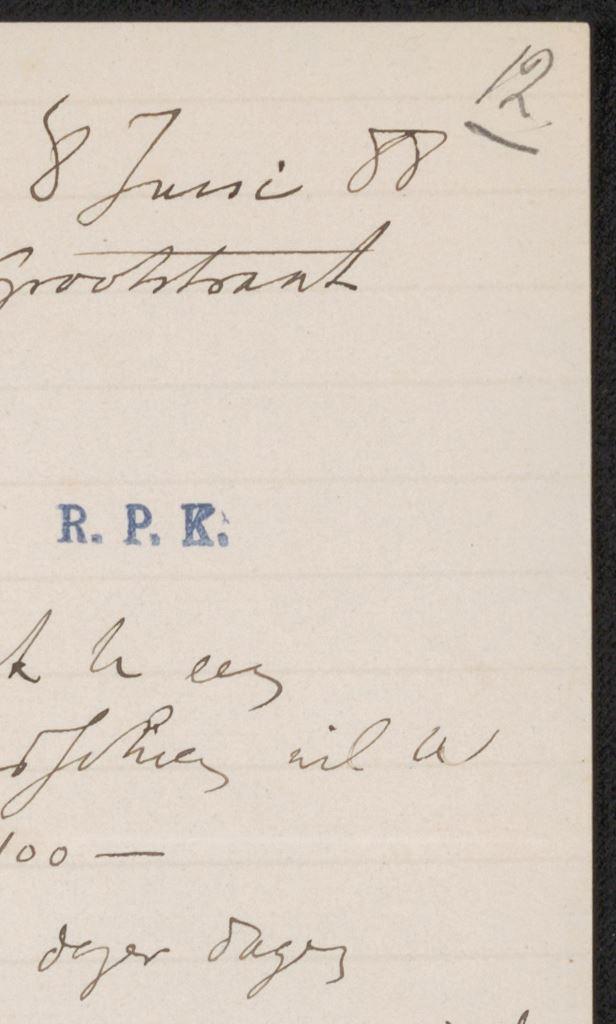 12
8 Juni 88
Grootstraat
R. P. K.
k U een
wil U
100 —
dezer dagen